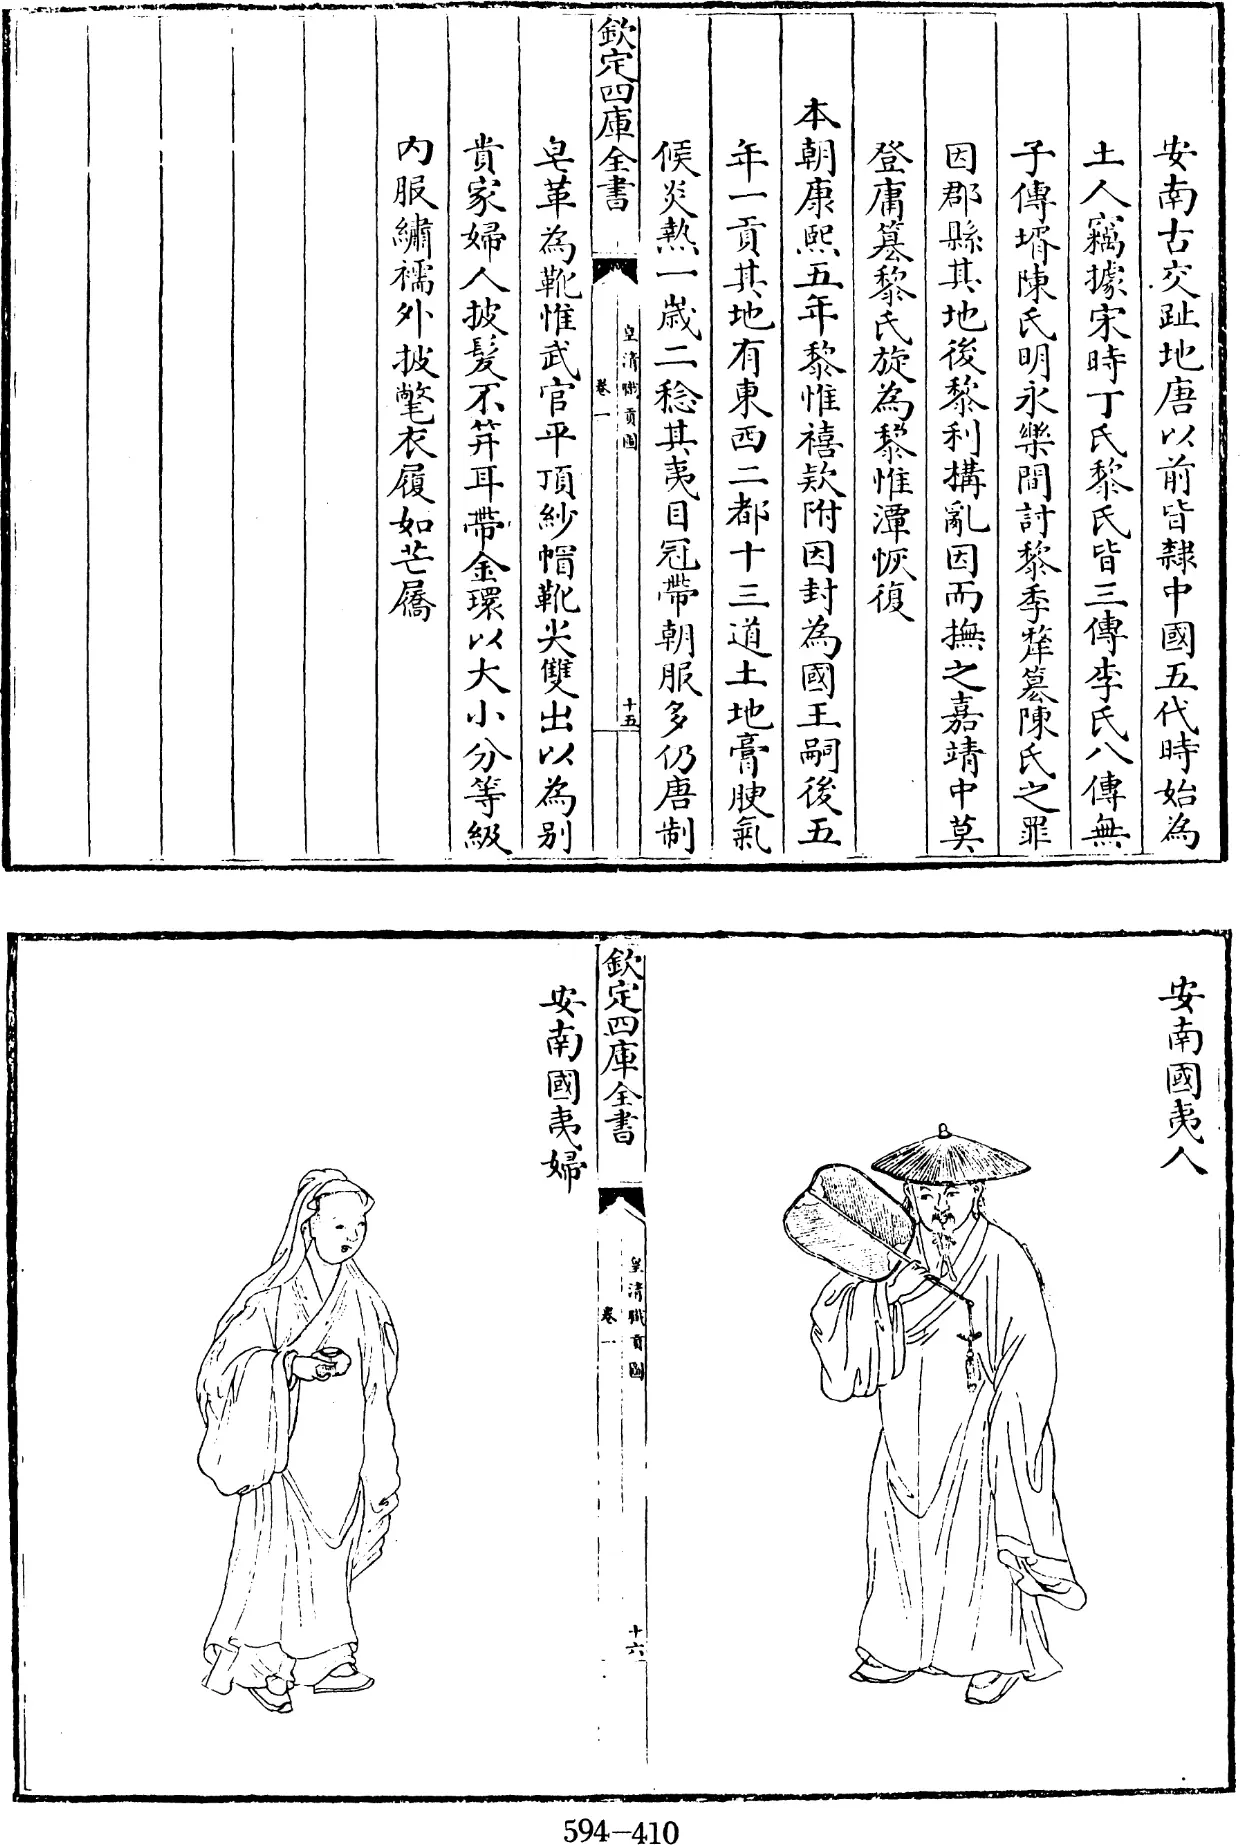 安南古交趾地唐以前皆隸中國五代時始為
土人竊據宋時丁氏黎氏皆三傳李氏八傳無
子傳壻陳氏明永樂間討黎季犛簒陳氏之罪
因郡縣其地後黎利搆亂因而撫之嘉靖中莫
登庸簒黎氏旋為黎惟潭恢復
本朝康熙五年黎惟禧欵附因封為國王嗣後五
年一貢其地有東西二都十三道土地膏腴氣
候炎熱一歲二稔其夷目冠帶朝服多仍唐制
欽定四庫全書
皇清職貢圖
卷一
十五
皂革為靴惟武官平頂紗帽靴尖雙出以為别
貴家婦人披髮不笄耳帶金環以大小分等級
内服繡襦外披氅衣履如芒屩
安南國夷人
欽定四庫全書
皇清職貢圖
卷一
十六
安南國夷婦
594-410